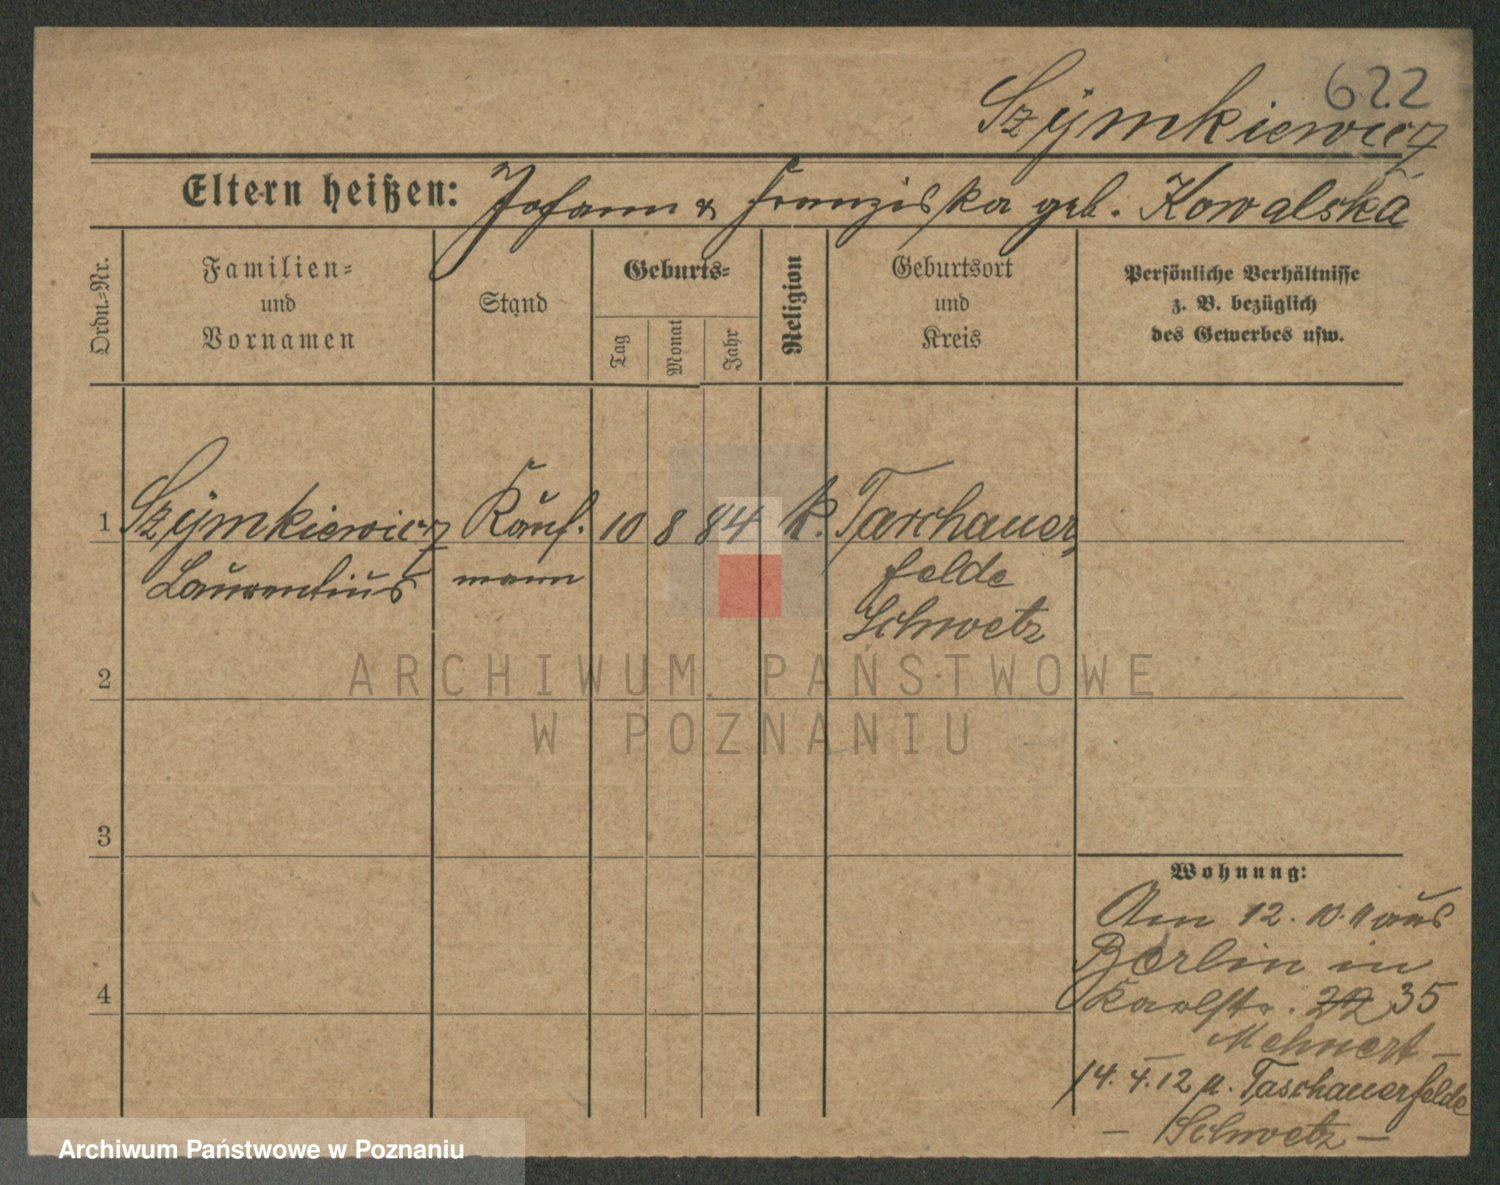 622
Szymkiewicz
Eltern heißen: Johann & Franziska geb. Kowalska
Ordn=Nr.
Familien=
und
Vornamen
Stand
Geburts=
Tag
Monat
Jahr
Religion
Geburtsort
und
Kreis
Persönliche Verhältnisse
z. B. bezüglich
des Gewerbes usw.
1 Szymkiewicz Kauf. 10 8 84 k. Tarchauer
Laurentius mann felde
Schwetz
2
3
4
Wohnung:
Am 12. 10. 11 aus
Berlin in
Karlstr. 22 35
Mehnert –
14. 4. 12 n. Taschauerfelde
– Schwetz –
ARCHIWUM PAŃSTWOWE
W POZNANIU
Archiwum Państwowe w Poznaniu